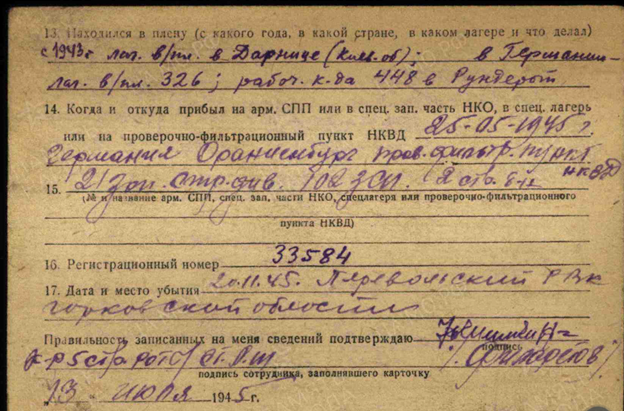 13. Находился в плену (с какого года, в какой стране, в каком лагере и что делал)
с 1943г лаг. в/пл. в Дарнице (Киев. об); в Германии-
лаг. в/пл. 326; рабоч. к-да 448 в Рундерот
14. Когда и откуда прибыл на арм. СПП или в спец. зап. часть НКО, в спец. лагерь
или на проверочно-фильтрационный пункт НКВД 25-05-1945 г
Германия Ораниенбург пров. фильтр. пункт
НКВД
15. 21 зап. стр. див. 102 ЗСП. 2 стр. б-н
(№ и название арм. СПП, спец. зап. части НКО, спецлагеря или проверочно-фильтрационного
пункта НКВД)
16. Регистрационный номер 33584
17. Дата и место убытия 20.11.45. РВК
Горьковской области
Правильность записанных на меня сведений подтверждаю
подпись
подпись сотрудника, заполнявшего карточку
13 июля 1945г.